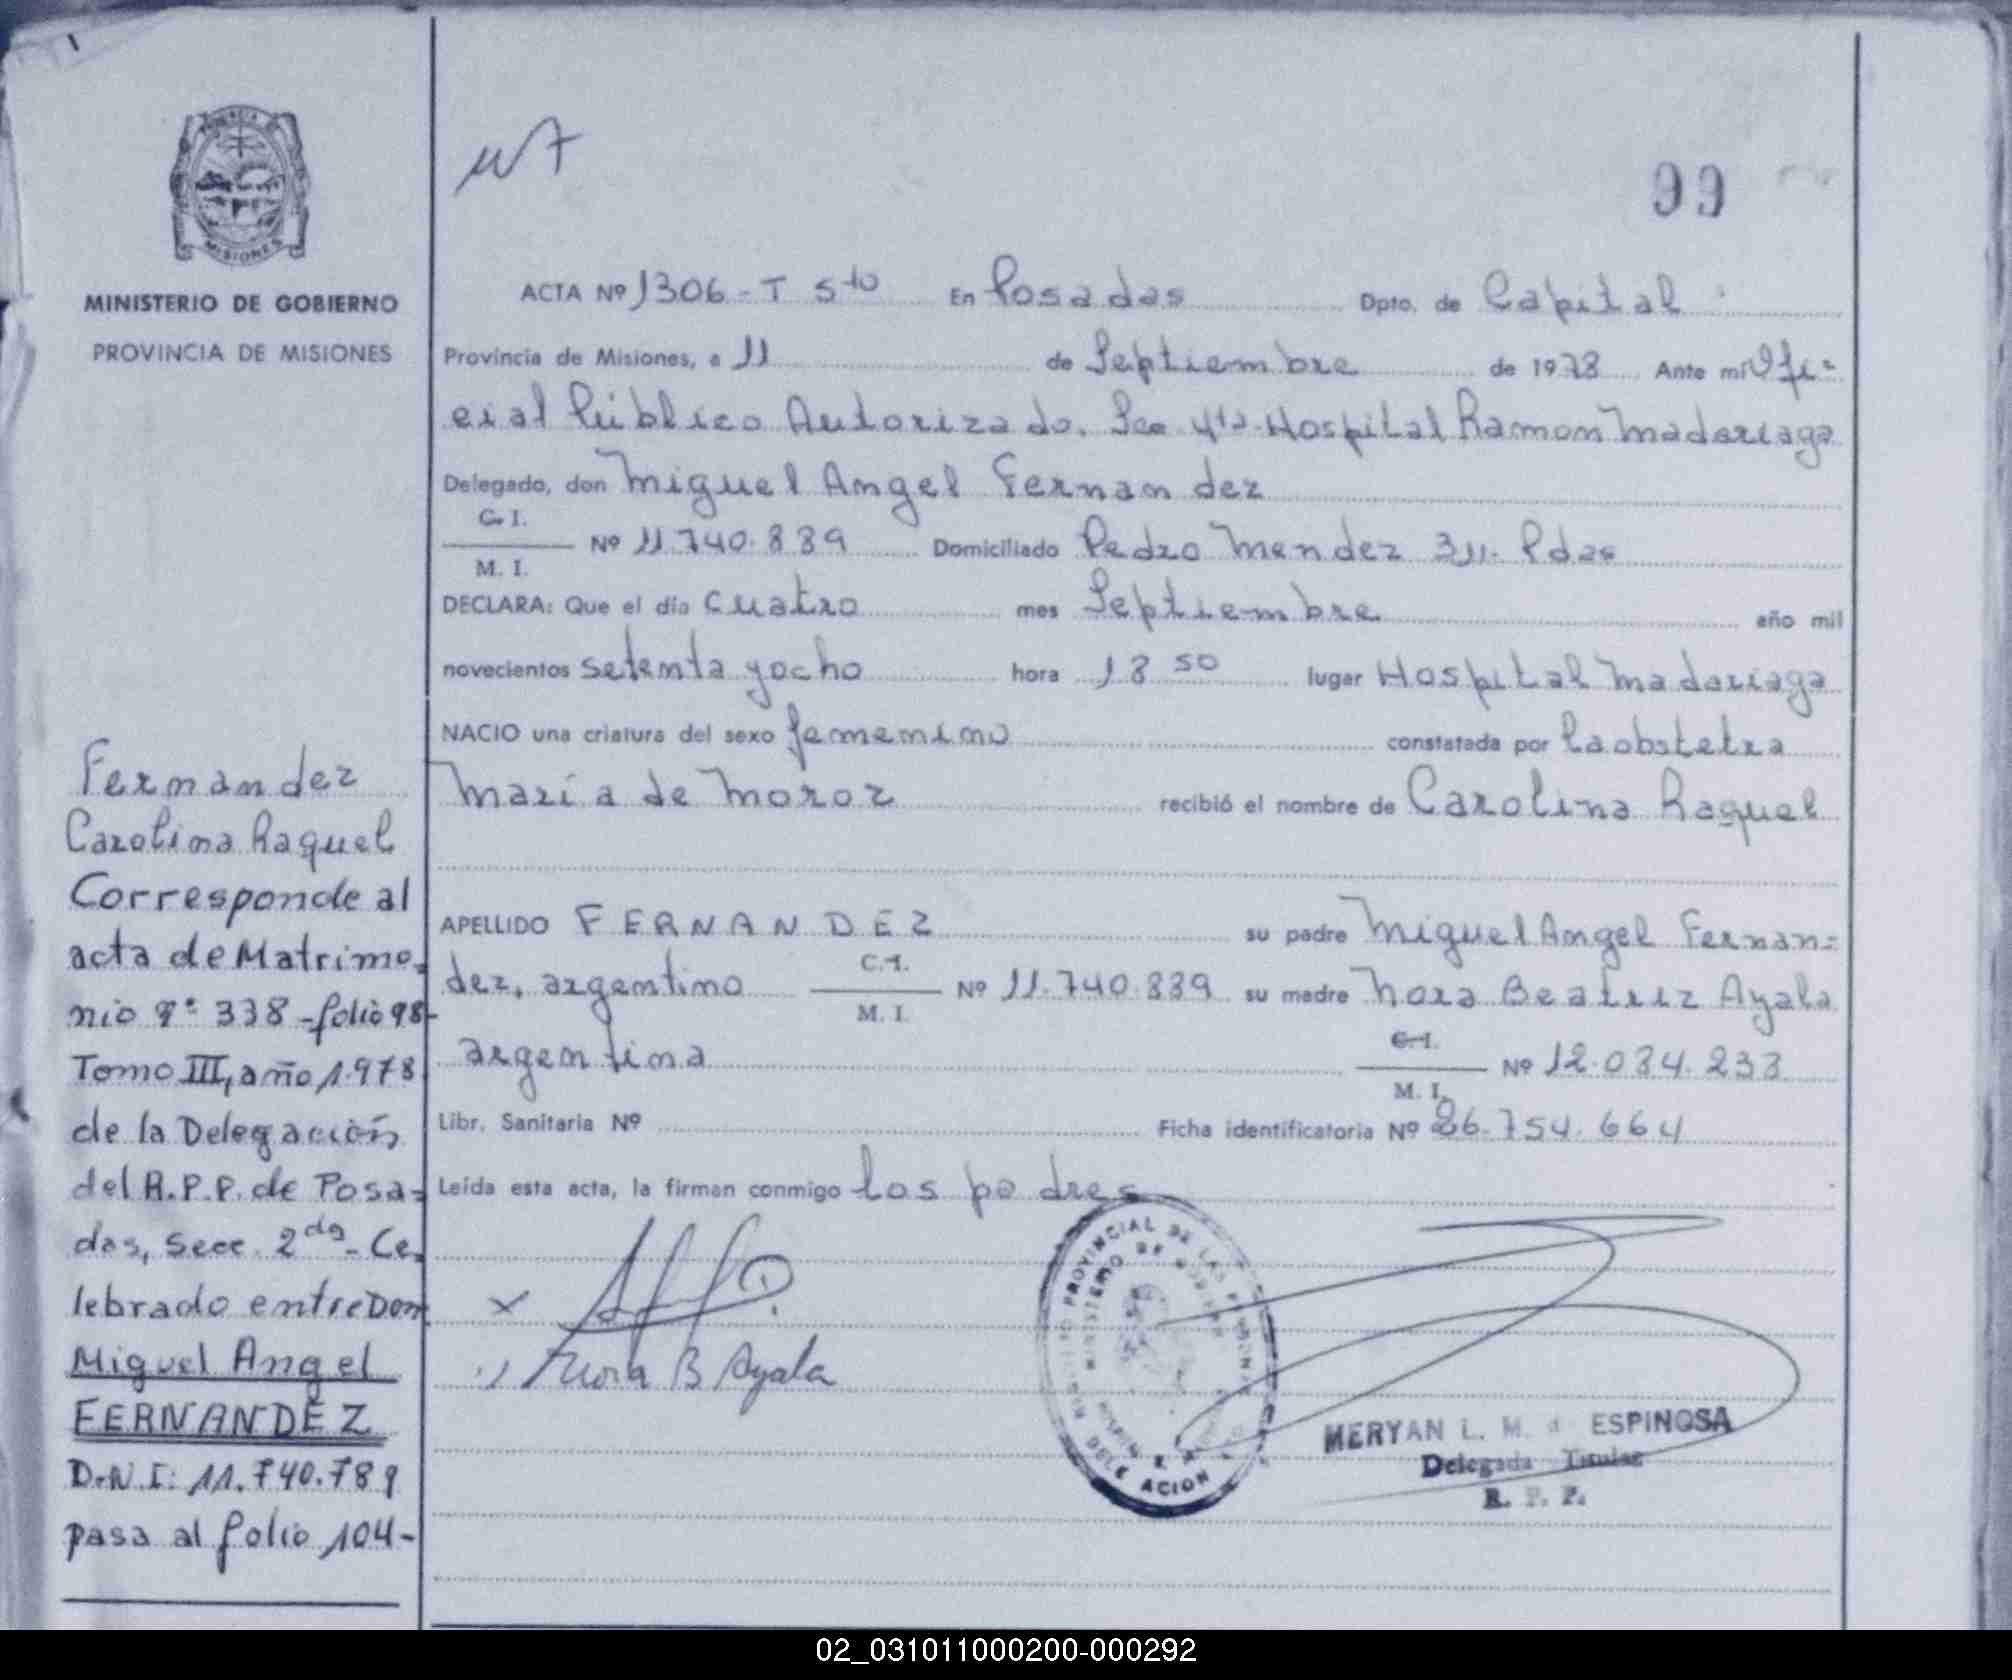 99
PROVINCIA DE
MISIONES
MINISTERIO DE GOBIERNO
PROVINCIA DE MISIONES
ACTA Nº 1306-T 5to En Posadas Dpto. de Capital
Provincia de Misiones, a 11 de Septiembre de 1978 Ante mí Ofi=
cial Público Autorizado. Sec 4ta. Hospital Ramon Madariaga
Delegado, don Miguel Angel Fernandez
C. I.
M. I.
Nº 11.740.889 Domiciliado Pedro Mendez 311. Pdas
DECLARA: Que el día cuatro mes Septiembre año mil
novecientos setenta y ocho hora 18 50 lugar Hospital Madariaga
NACIO una criatura del sexo femenino constatada por la obstetra
María de Moroz recibió el nombre de Carolina Raquel
APELLIDO FERNANDEZ su padre Miguel Angel Fernan=
dez, argentino C.I. M. I. Nº 11.740.889 su madre Nora Beatriz Ayala
argentina C.I. M. I. Nº 12.084.238
Libr. Sanitaria Nº Ficha identificatoria Nº 26.754.664
Leída esta acta, la firman conmigo los padres
x
Nora B Ayala
PROVINCIAL DE LAS PERSONAS
MINISTERIO DE GOBIERNO
DELEGACION
MERYAN L. M. d ESPINOSA
Delegada Titular
R. P. P.
Fernandez
Carolina Raquel
Corresponde al
acta de Matrimo=
nio nº 338 - folio 98-
Tomo III, año 1.978
de la Delegación
del R.P.P. de Posa=
das, Secc. 2da. Ce=
lebrado entre Don
Miguel Angel
FERNANDEZ
D.N.I: 11.740.789
pasa al folio 104-
02_031011000200-000292